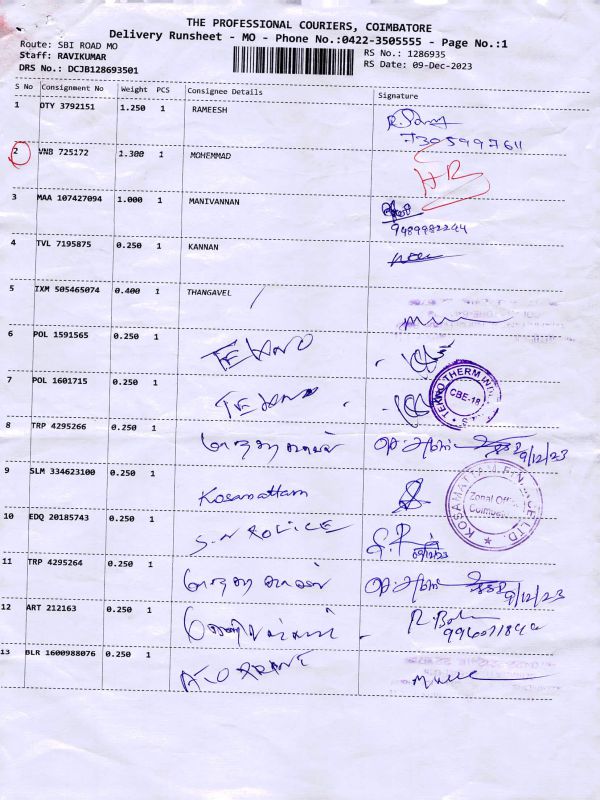 THE PROFESSIONAL COURIERS, COIMBATORE
Delivery Runsheet - MO - Phone No.:0422-3505555 - Page No.:1
Route: SBI ROAD MO
Staff: RAVIKUMAR
DRS No.: DCJB128693501
RS No.: 1286935
RS Date: 09-Dec-2023
S No Consignment No Weight PCS Consignee Details Signature
1 DTY 3792151 1.250 1 RAMEESH
7305997611
2 VNB 725172 1.300 1 MOHEMMAD
3 MAA 107427094 1.000 1 MANIVANNAN
9489982244
4 TVL 7195875 0.250 1 KANNAN
5 IXM 505465074 0.400 1 THANGAVEL
6 POL 1591565 0.250 1
7 POL 1601715 0.250 1
TEKNO THERM IND
CBE-18
8 TRP 4295266 0.250 1 மாநகர காவல் 9/12/23
9 SLM 334623100 0.250 1 Kosamattam
KOSAMATTAM FINANCE LTD
Zonal Office
Coimbatore
10 EDQ 20185743 0.250 1 S.N POLICE
09/12/23
11 TRP 4295264 0.250 1 மாநகர காவல் 9/12/23
12 ART 212163 0.250 1
13 BLR 1600988076 0.250 1